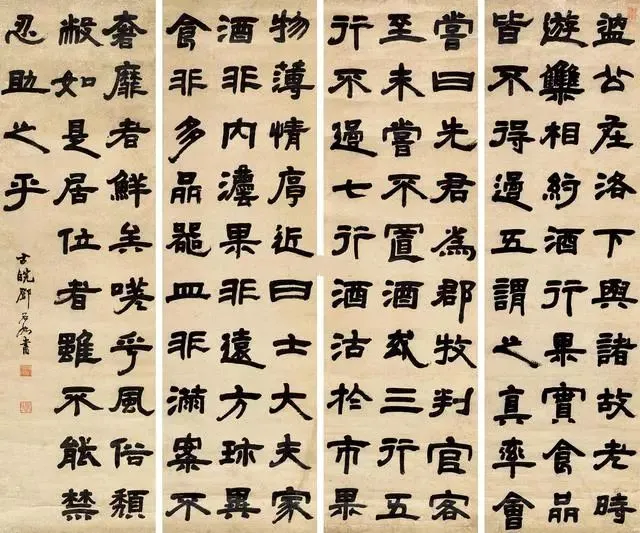 温公在洛下與諸故老時
遊樂相約酒行果實食品
皆不得過五謂之真率會
嘗曰先君為郡牧判官客
至未嘗不置酒或三行五
行不過七行酒沽於市果
物薄情厚近日士大夫家
酒非內灋果非遠方珎異
食非多品器皿非滿案不
奢靡者鮮矣嗟乎風俗頹
敝如是居位者雖不能禁
忍助之乎
古皖鄧石如書